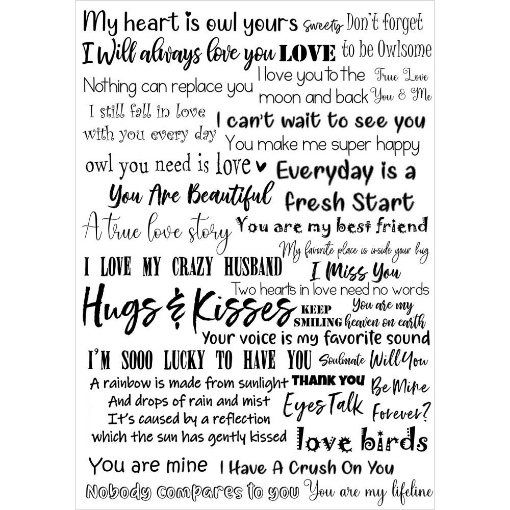 My heart is owl yours sweety Don't forget
I Will always love you LOVE to be Owlsome
Nothing can replace you I love you to the True Love
moon and back You & Me
I still fall in love
with you every day
I can't wait to see you
You make me super happy
owl you need is love ♥
Everyday is a
fresh Start
You Are Beautiful
A true love story You are my best friend
My favorite place is inside your hug
I LOVE MY CRAZY HUSBAND I Miss You
Two hearts in love need no words
Hugs & Kisses KEEP
SMILING
You are my
heaven on earth
Your voice is my favorite sound
I'M SOOO LUCKY TO HAVE YOU Soulmate Will You
Be Mine
Forever?
A rainbow is made from sunlight THANK YOU
And drops of rain and mist
It's caused by a reflection
which the sun has gently kissed
Eyes Talk
love birds
You are mine I Have A Crush On You
Nobody compares to you You are my lifeline